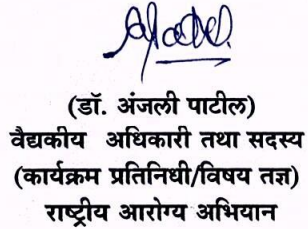 (डॉ. अंजली पाटील)
वैद्यकीय अधिकारी तथा सदस्य
(कार्यक्रम प्रतिनिधी/विषय तज्ञ)
राष्ट्रीय आरोग्य अभियान